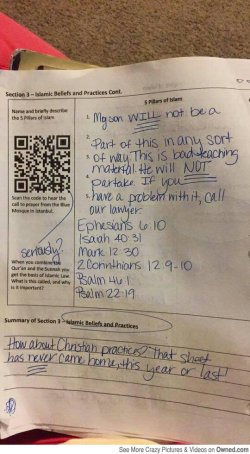 Section 3 – Islamic Beliefs and Practices Cont.
Name and briefly describe
the 5 Pillars of Islam
Scan the code to hear the
call to prayer from the Blue
Mosque in Istanbul.
seriously?
When you combine the
Qur'an and the Sunnah you
get the basis of Islamic Law.
What is this called, and why
is it important?
5 Pillars of Islam
1. My son WILL not be a
2. Part of this in any sort
3. of way. This is bad teaching
material. He will NOT
4. partake. If you
5. have a problem with it, call
our lawyer.
Ephesians 6:10
Isaiah 40:31
Mark 12:30
2 Corinthians 12:9-10
Psalm 46:1
Psalm 22:19
Summary of Section 3 – Islamic Beliefs and Practices
How about Christian practices? That sheet
has never came home, this year or last!
See More Crazy Pictures & Videos on Owned.com